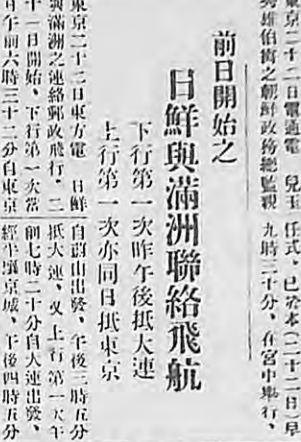 東京二十二日電通電　兒玉
秀雄伯爵之朝鮮政務總監親
任式、已於本(二十二日)早
九時二十分、在宮中舉行、
前日開始之
日鮮與滿洲聯絡飛航
下行第一次昨午後抵大連
上行第一次亦同日抵東京
東京二十二日東方電　日鮮
與滿洲之連絡郵政飛行、二
十一日開始、下行第一次當
日午前六時三十二分自東京
自蔚山出發、午後三時五分
抵大連、又上行第一次午
前七時二十分自大連出發、
經平壤京城、午後四時五分